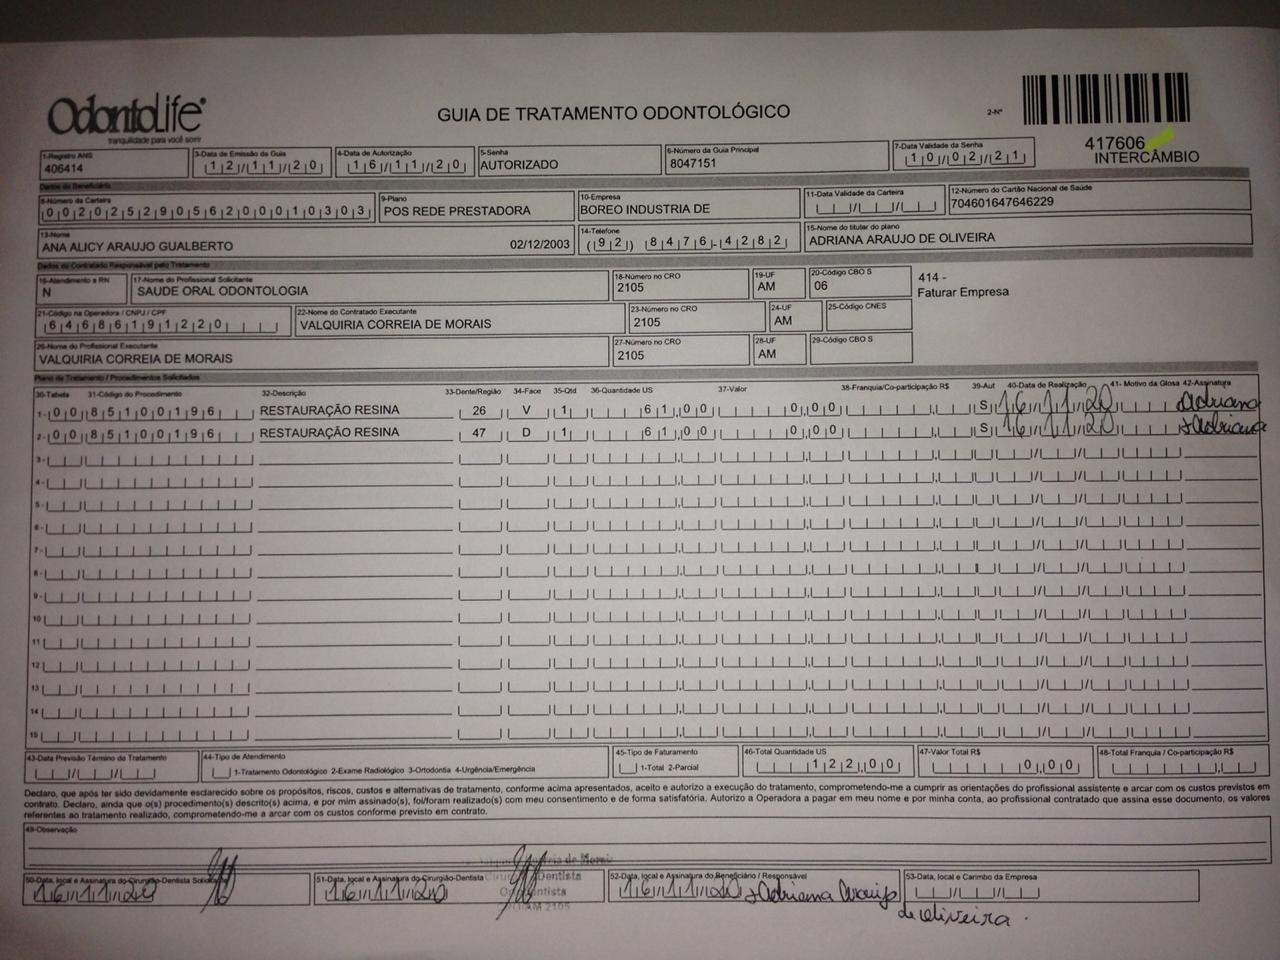 OdontoLife®
tranquilidade para você sorrir
GUIA DE TRATAMENTO ODONTOLÓGICO
2-Nº
417606
INTERCÂMBIO
1-Registro ANS
406414
3-Data de Emissão da Guia
12/11/20
4-Data de Autorização
16/11/20
5-Senha
AUTORIZADO
6-Número da Guia Principal
8047151
7-Data Validade da Senha
10/02/21
Dados do Beneficiário
8-Número da Carteira
00202529056200010303
9-Plano
POS REDE PRESTADORA
10-Empresa
BOREO INDUSTRIA DE
11-Data Validade da Carteira
12-Número do Cartão Nacional de Saúde
704601647646229
13-Nome
ANA ALICY ARAUJO GUALBERTO 02/12/2003
14-Telefone
(92) 8476-4282
15-Nome do titular do plano
ADRIANA ARAUJO DE OLIVEIRA
Dados do Contratado Responsável pelo Tratamento
16-Atendimento a RN
N
17-Nome do Profissional Solicitante
SAUDE ORAL ODONTOLOGIA
18-Número no CRO
2105
19-UF
AM
20-Código CBO S
06
414 -
Faturar Empresa
21-Código na Operadora / CNPJ / CPF
64686191220
22-Nome do Contratado Executante
VALQUIRIA CORREIA DE MORAIS
23-Número no CRO
2105
24-UF
AM
25-Código CNES
26-Nome do Profissional Executante
VALQUIRIA CORREIA DE MORAIS
27-Número no CRO
2105
28-UF
AM
29-Código CBO S
Plano de Tratamento / Procedimentos Solicitados
30-Tabela 31-Código do Procedimento 32-Descrição 33-Dente/Região 34-Face 35-Qtd 36-Quantidade US 37-Valor 38-Franquia/Co-participação R$ 39-Aut 40-Data de Realização 41- Motivo da Glosa 42-Assinatura
1- 00 85100196 RESTAURAÇÃO RESINA 26 V 1 61,00 0,00 S 16/11/20 Adriana
2- 00 85100196 RESTAURAÇÃO RESINA 47 D 1 61,00 0,00 S 16/11/20 Adriana
3-
4-
5-
6-
7-
8-
9-
10
11
12
13
14
15
43-Data Previsão Término do Tratamento
44-Tipo de Atendimento
1-Tratamento Odontológico 2-Exame Radiológico 3-Ortodontia 4-Urgência/Emergência
45-Tipo de Faturamento
1-Total 2-Parcial
46-Total Quantidade US
122,00
47-Valor Total R$
0,00
48-Total Franquia / Co-participação R$
Declaro, que após ter sido devidamente esclarecido sobre os propósitos, riscos, custos e alternativas de tratamento, conforme acima apresentados, aceito e autorizo a execução do tratamento, comprometendo-me a cumprir as orientações do profissional assistente e arcar com os custos previstos em
contrato. Declaro, ainda que o(s) procedimento(s) descrito(s) acima, e por mim assinado(s), foi/foram realizado(s) com meu consentimento e de forma satisfatória. Autorizo a Operadora a pagar em meu nome e por minha conta, ao profissional contratado que assina esse documento, os valores
referentes ao tratamento realizado, comprometendo-me a arcar com os custos conforme previsto em contrato.
49-Observação
50-Data, local e Assinatura do Cirurgião-Dentista Solicitante
16/11/20
51-Data, local e Assinatura do Cirurgião-Dentista
16/11/20
52-Data, local e Assinatura do Beneficiário / Responsável
16/11/20 Adriana Araujo
de Oliveira.
53-Data, local e Carimbo da Empresa